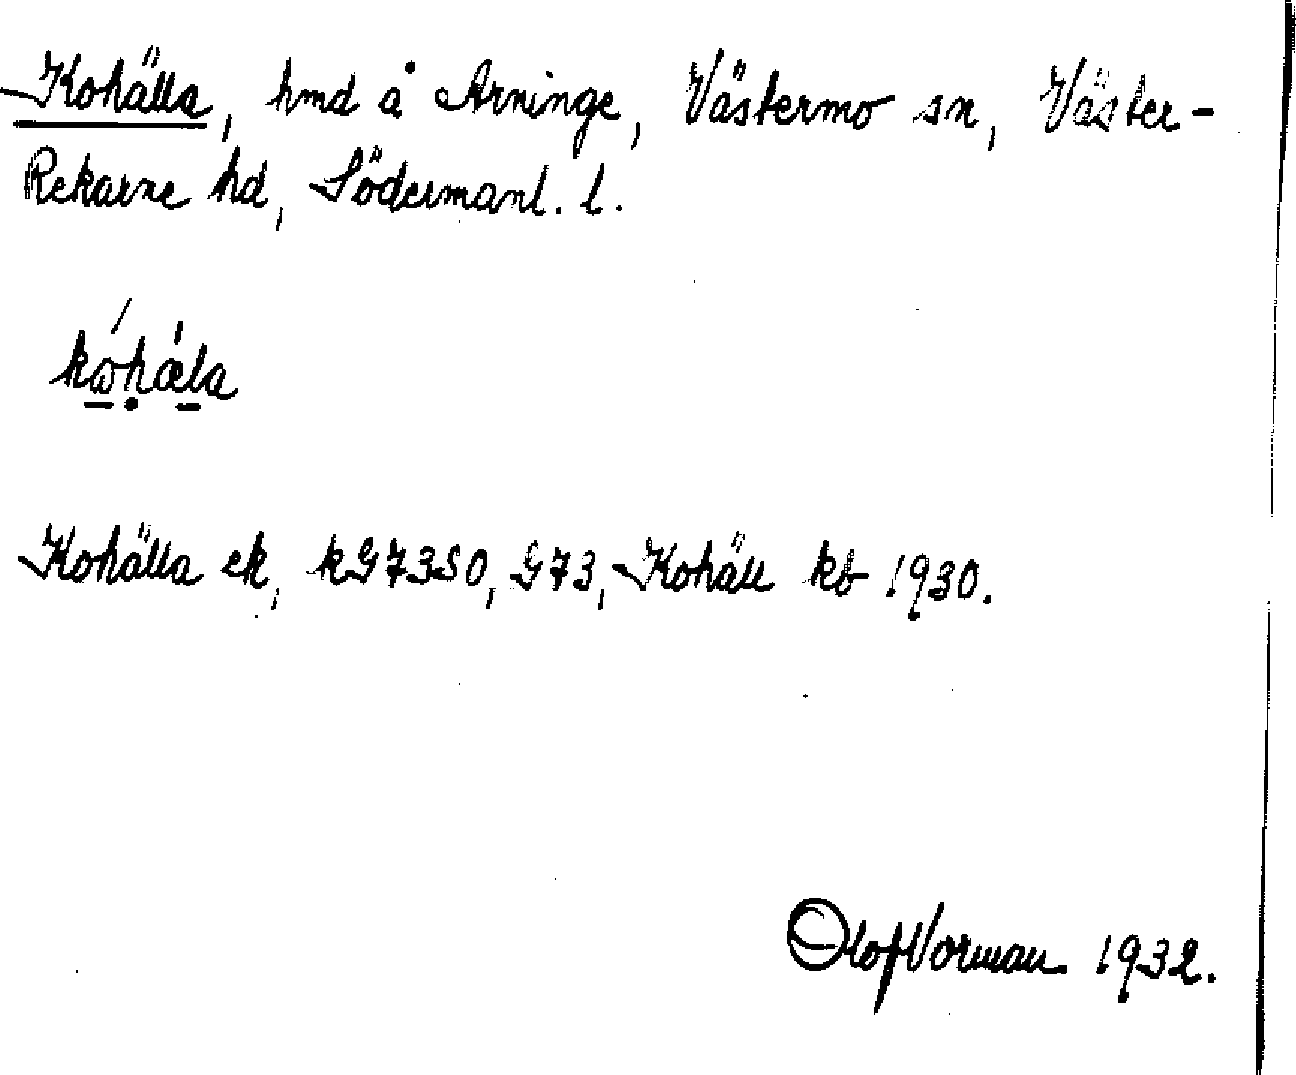 Kohälla, hmd å Arninge, Västermo sn, Väster-
Rekarne hd, Södermanl. l.
kώhǽla
Kohälla ek, kG73SO, G73, Kohäll kb 1930.
Olof Vorman 1932.